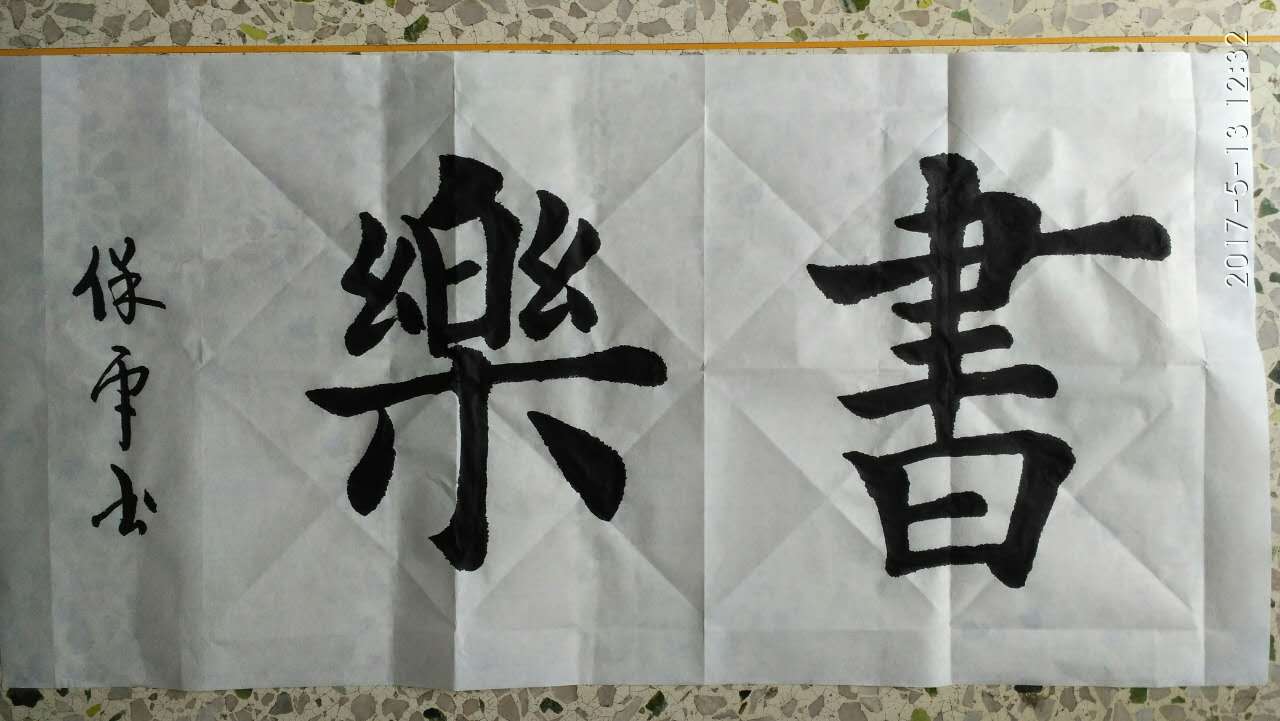 書樂
保军书
2017-5-13 12:32